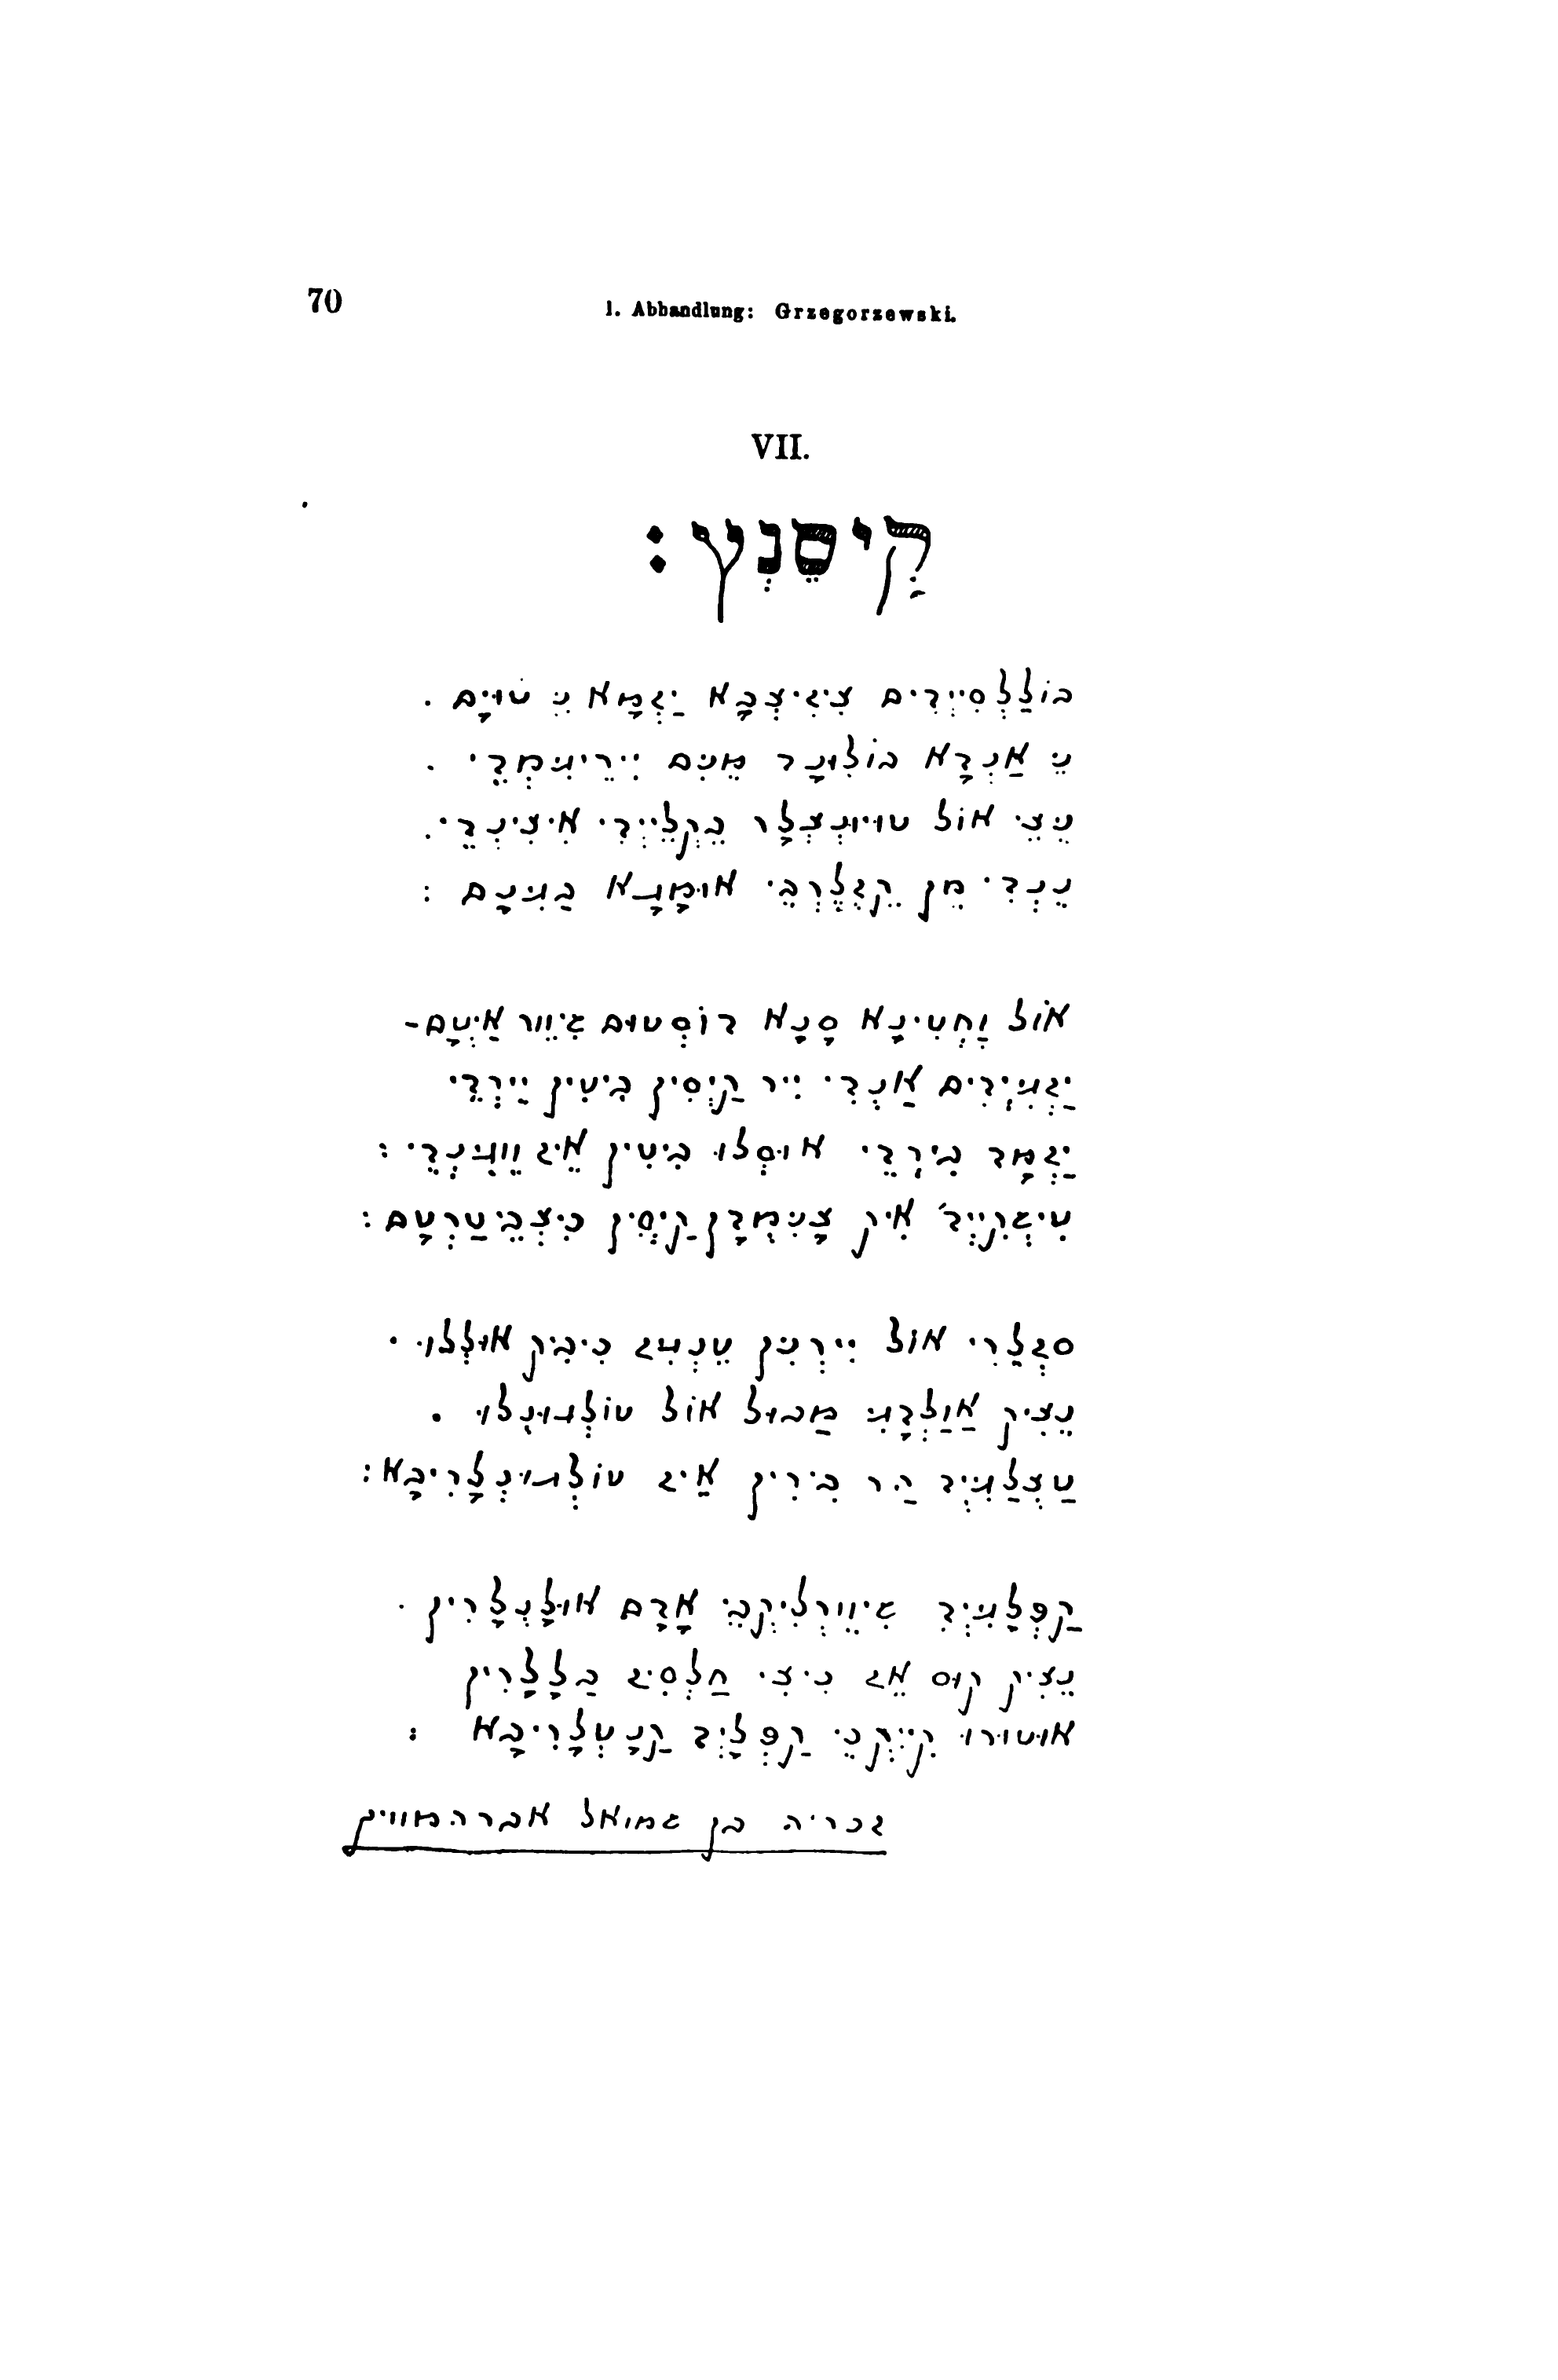 70
1. Abhandlung: Grzegorzewski.
VII.
קַיסֵנְץ :
בוֹלַלְסִיְידִים צִיגִיצְבָּא יַזְמָא נִי טוּיָם .
נֵי אַנְדָא בוֹלוּנָד מֵנִים יִירֵיגִימְדֵי .
נֵצֵי אוֹל טוּיוּנְצְלָר בֵקְלֵיְידִי אִיצִינְדֵי .
נֵנְדִי מֵן קֵזְלֵרְבֵי אוּמָגָא בַגִינָם :
אוֹל וַחְטִינָא סָנָא דוֹסְטוּם גִיוֵור אַיְטָם -
יַזְגִיְירִים אַנְדִי יִיר קַיְסִין בִיטִין יֵירְדֵי
יַזְמָד בִירְדֵי אוּסְלוּ בִיטִין אֵיז וֵוגֵנְדֵי :
טִיגְקִיְיד אִיק צָנִימְדָן קַיְסִין כִיצְבֵי טַרְטָם :
סִזְלַרִי אוֹל יִירְנִין טֵנְגִיז כִיבִיק אוּלְלוּ .
נֵצִיק אַוַלְדָגִי מַבוּל אוֹל טוֹלְגוּנְלוּ .
טַצְלַגִיְיד הַר בִירִין אַיז טוֹלְגוּנְלָרִיבָא :
קַפְלָגִיְיד גִיוֵורְלִיקְבֵי אָדָם אוּלָנְלָרִין .
נֵצִיק קוּס אֵז כִיצִי חַלְסִיז בַלָלָרִין
אוּטוּרוּ קִיְיקְבֵי קַפְלָיְד קַנָטְלָרִיבָא :
זכריה בן שמואל אברהמוויץ